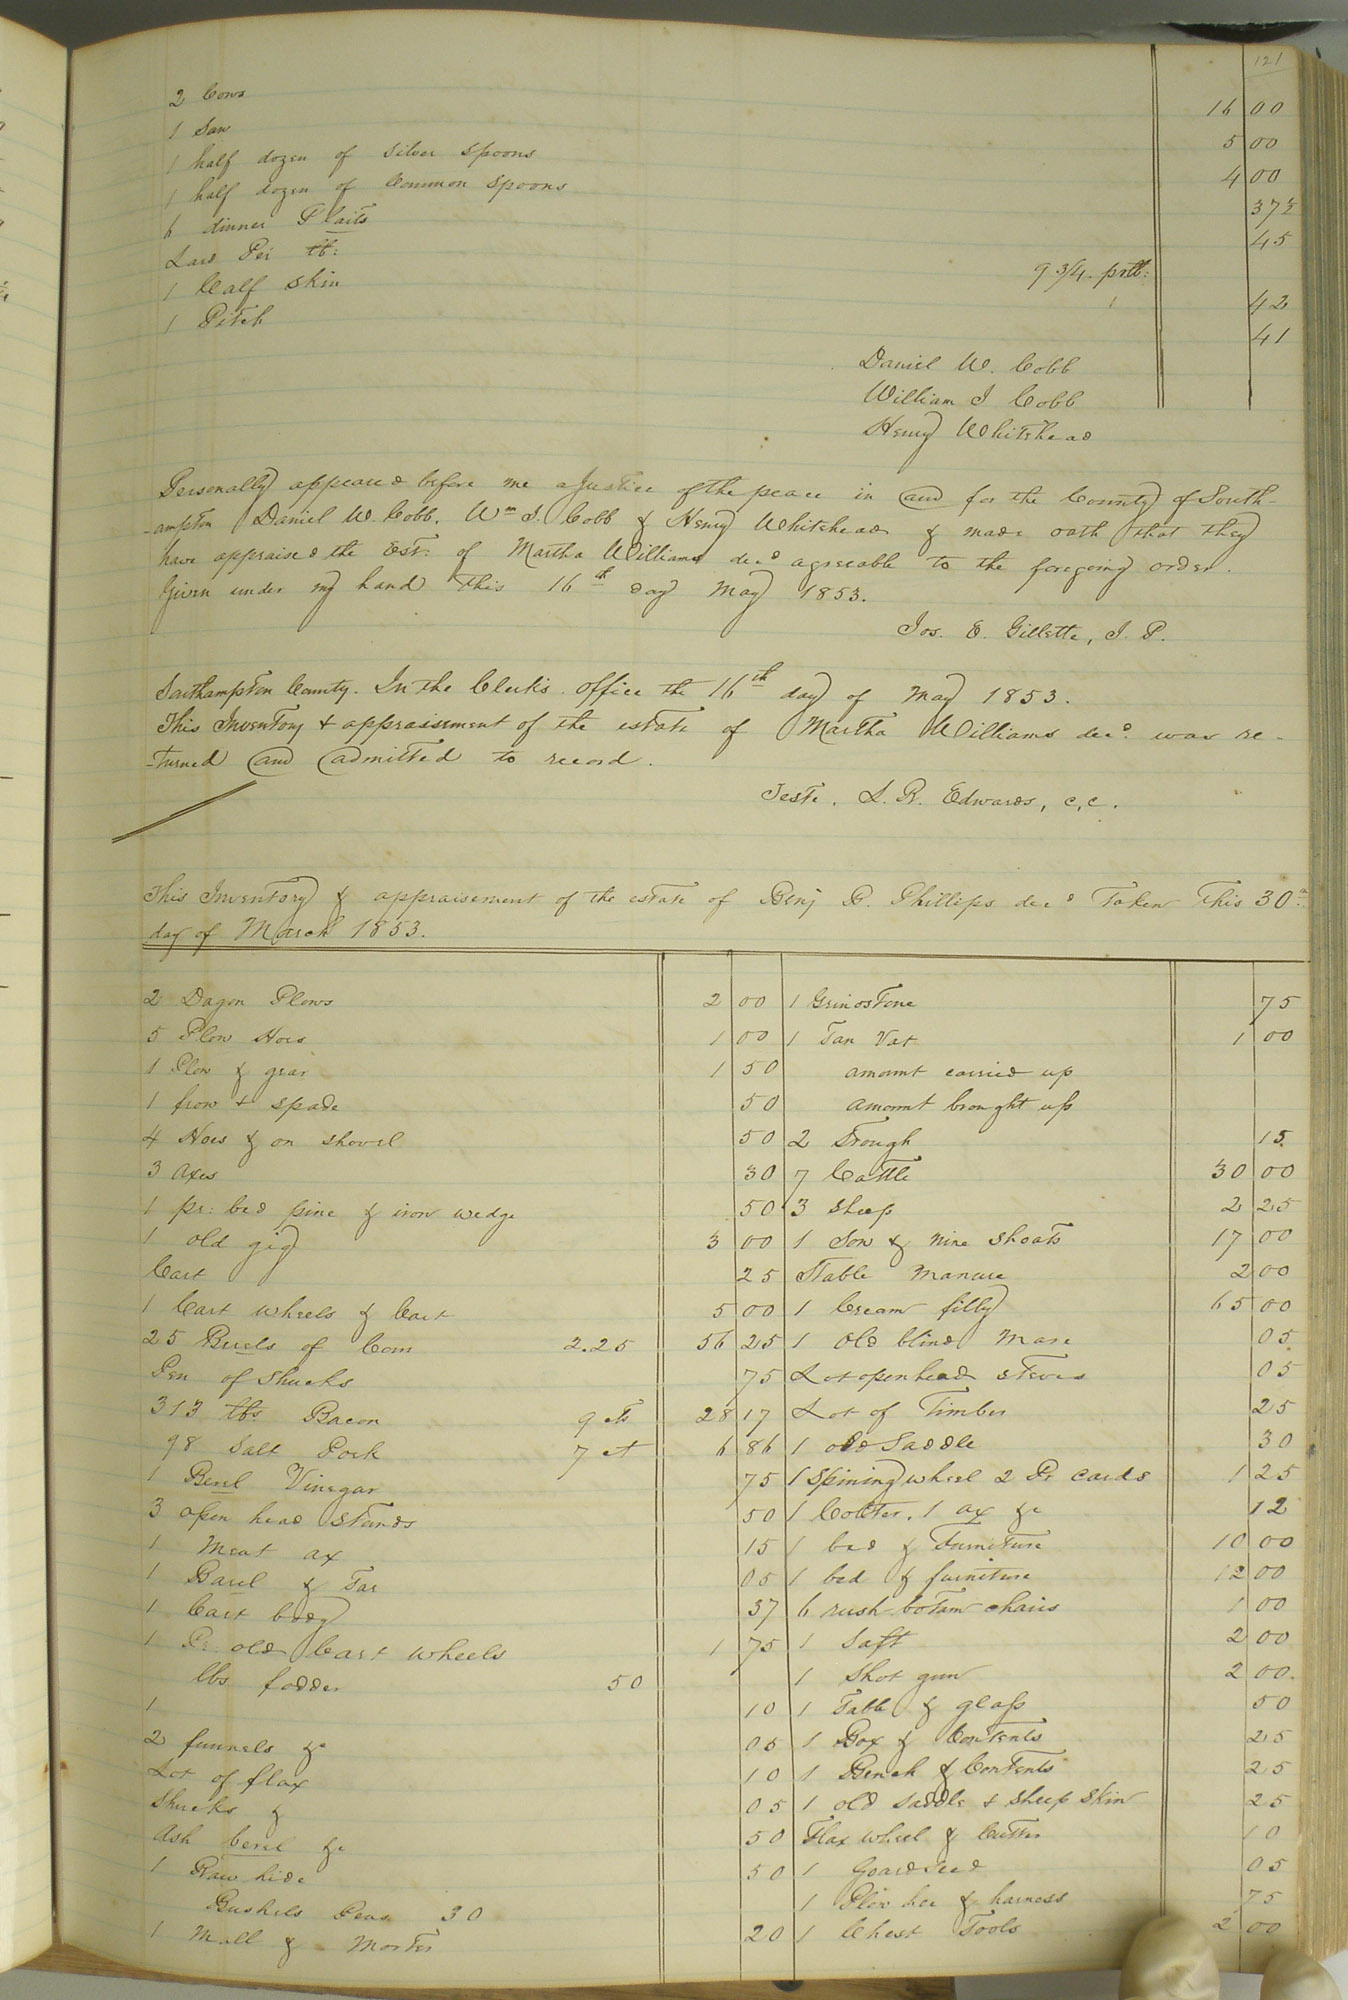 121
2 Cows 16 00
1 Sow 5 00
1 half dozen of Silver Spoons 4 00
1 half dozen of Common Spoons 37½
6 dinner Plaits 45
Lard Per lb: 9 3/4 pr lb:
1 Calf Skin 1 42
1 Pitch 41
Daniel W. Cobb
William J Cobb
Henry Whitehead
Personally appeared before me a Justice of the peace in and for the County of South-
-ampton Daniel W. Cobb, Wm J. Cobb & Henry Whitehead & made oath that they
have appraised the Est: of Martha Williams decd agreeable to the foregoing order.
Given under my hand this 16th day May 1853.
Jos. E. Gillette, J. P.
Southampton County. In the Clerks office the 16th day of May 1853.
This Inventory & appraisement of the estate of Martha Williams decd. was re-
-turned and admitted to record.
Teste, L. R. Edwards, c, c.
This Inventory & appraisement of the estate of Benj B. Phillips decd Taken This 30th
day of March 1853.
2 Dagon Plows 2 00
5 Plow Hoes 1 00
1 Plow & gear 1 50
1 frow & spade 50
4 Hoes & on shovel 50
3 Axes 30
1 pr: bed pine & iron wedge 50
1 old gig 3 00
Cart 25
1 Cart wheels & Cart 5 00
25 Brrels of Corn 2.25 56 25
Pen of Shucks 75
313 lbs Bacon 9 cts 28 17
98 Salt Pork 7 ct 6 86
1 Berrl Vinegar 75
3 open head Stands 50
1 Meat ax 15
1 Barel & Tar 05
1 Cart body 37
1 Pr. old Cart wheels 1 75
lbs fodder 50
1 10
2 funnels &c 05
Lot of flax 10
Shucks & 05
Ash berel &c 50
1 Raw hide 50
Bushels Peas 30
1 Mall & Morter 20
1 Grindstone 75
1 Tan Vat 1 00
amount carried up
amount brought up
2 Trough 15
7 Cattle 30 00
3 sheep 2 25
1 Sow & nine Shoats 17 00
Stable Manure 2 00
1 Cream filly 65 00
1 old blind Mare 05
Lot open head Steves 05
Lot of Timber 25
1 old Saddle 30
1 Spining wheel 2 Pr cards 1 25
1 Colter, 1 ax &c 12
1 bed & Furniture 10 00
1 bed & furniture 12 00
6 rush botam chairs 1 00
1 Saft 2 00
1 Shot gun 2 00
1 Table & glass 50
1 Box & Contents 25
1 Bench & Contents 25
1 old saddle & sheep Skin 25
Flax wheel & Cutter 10
1 Goardseed 05
1 Plow hoe & harness 75
1 Chest Tools 2 00